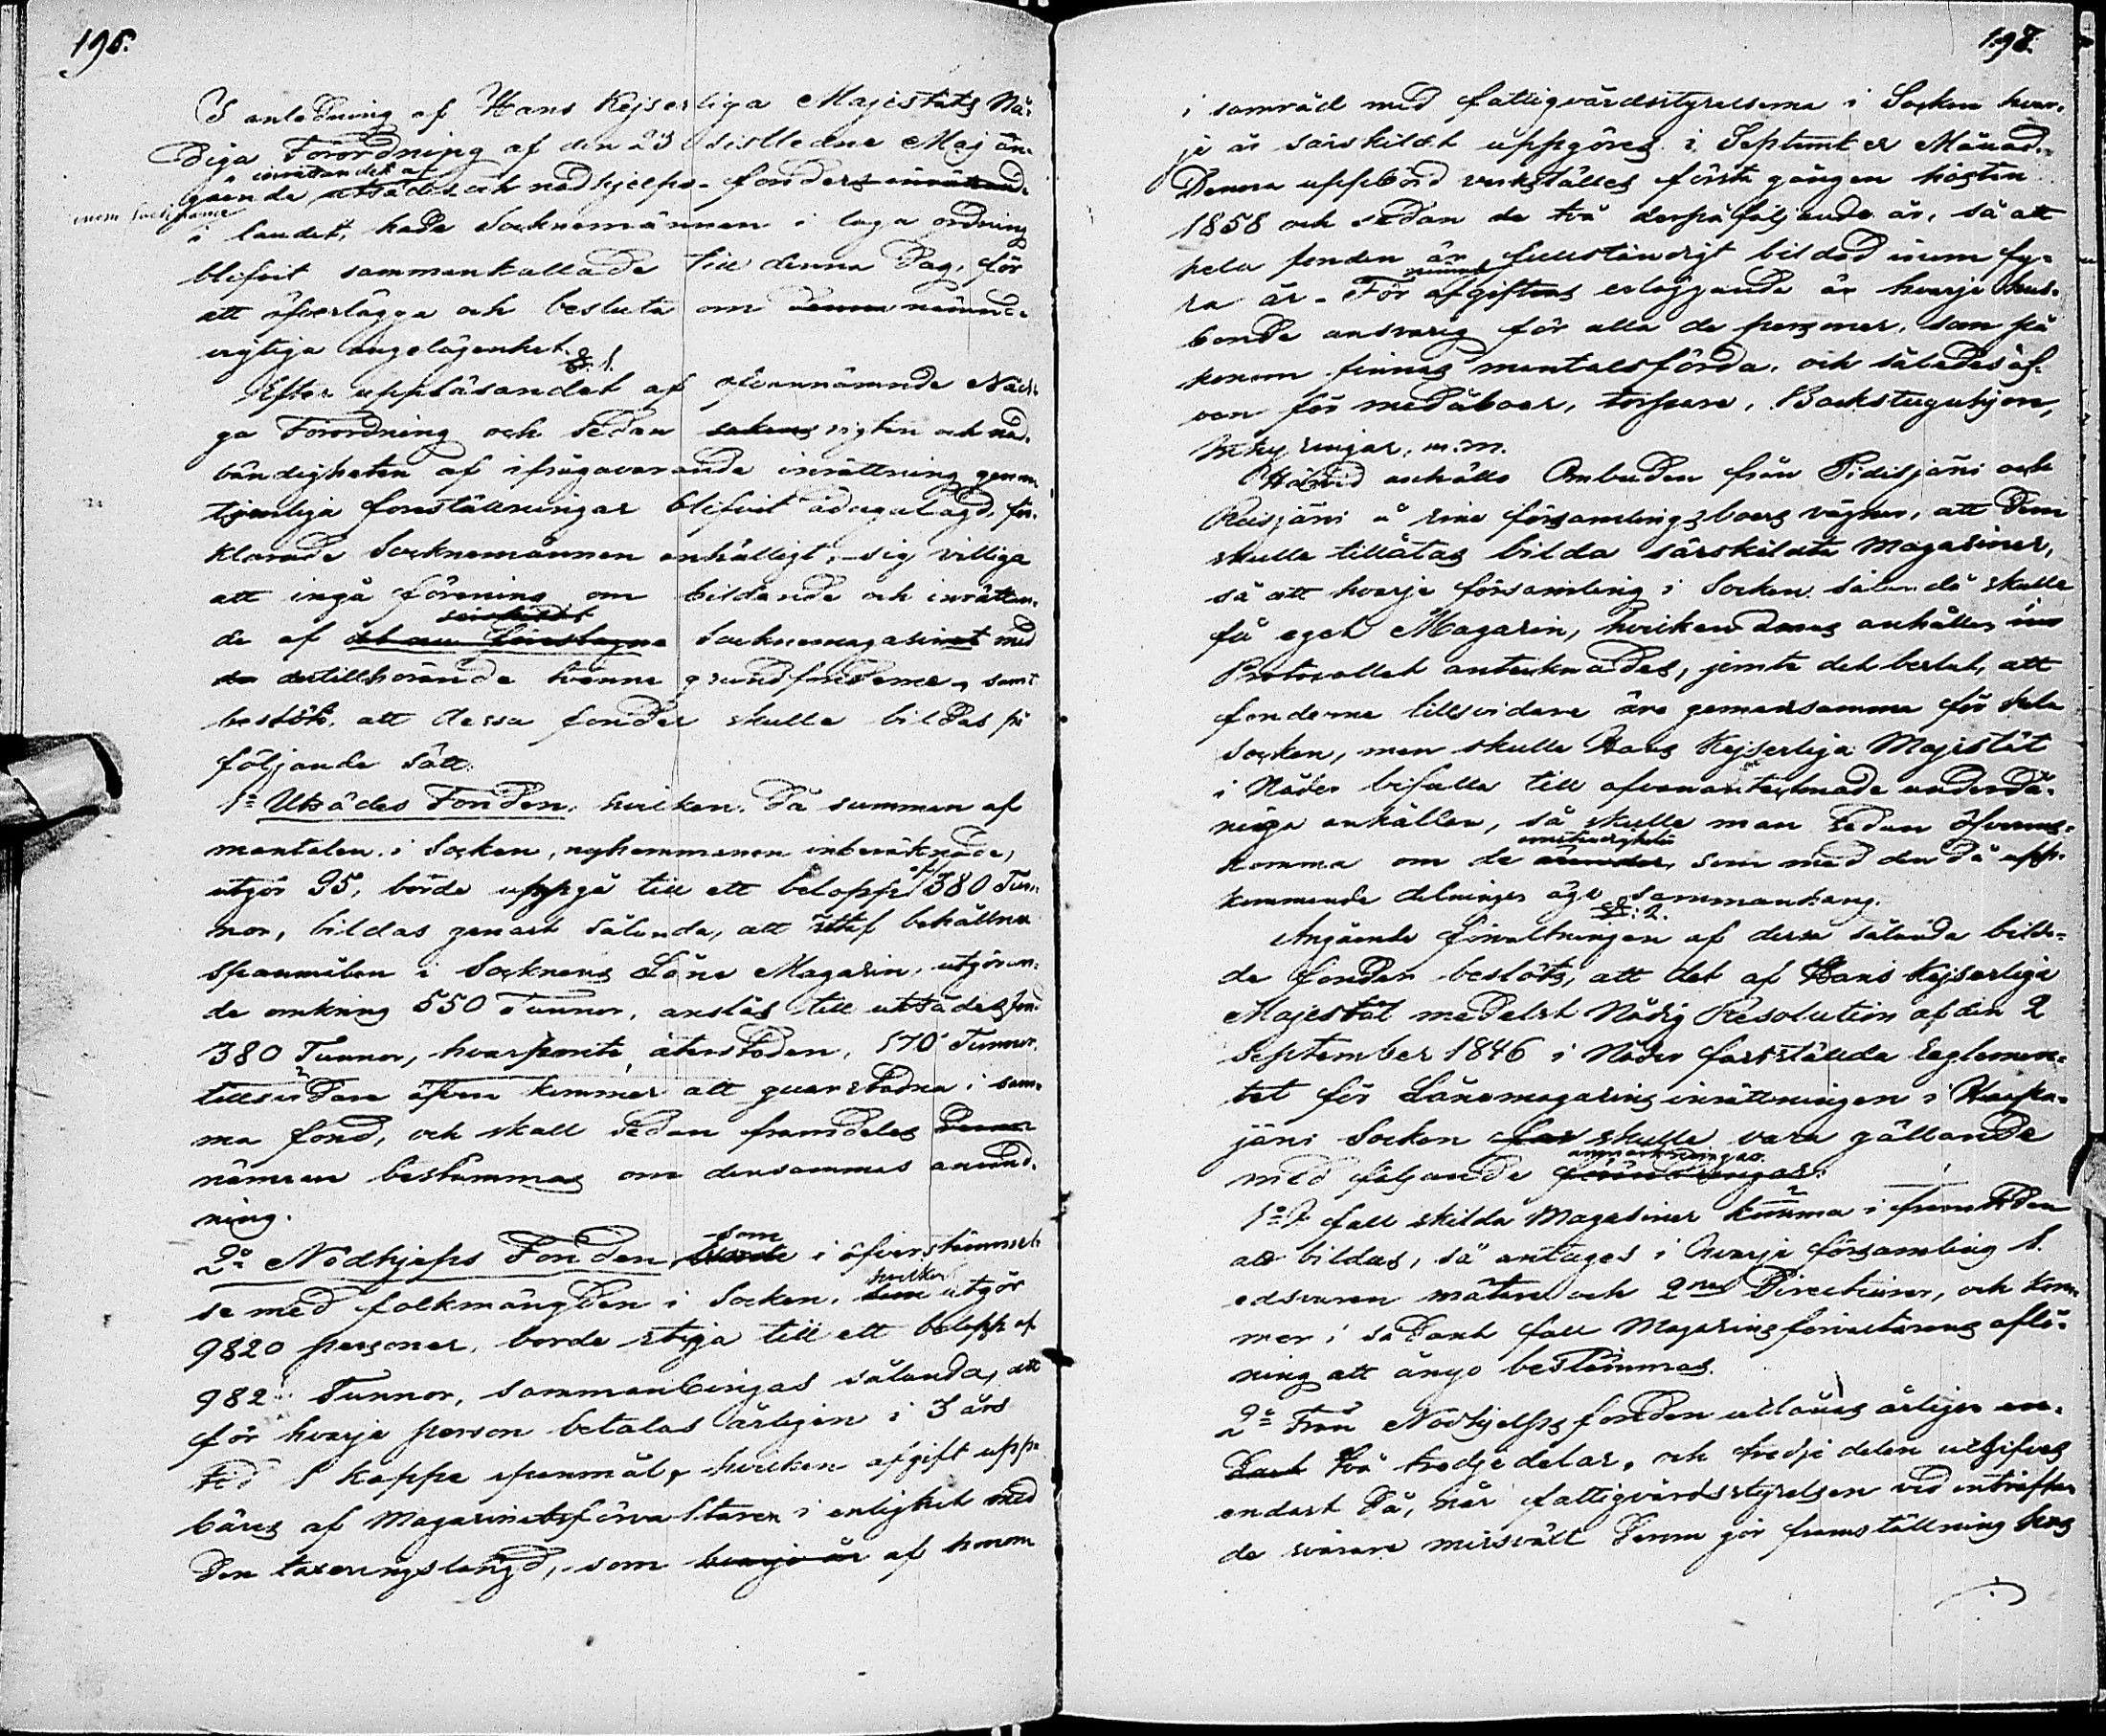 196.
I anledning af Hans Kejserliga Majestäts Nå-
diga Förordning af den 23 sistledne Maj an-
inrättandet af
gående utsädes och nödhjelps-fonders inrättande
inom socknarne
i landet, hade Socknemännen i laga ordning
blifvit sammankallade till denna dag, för
att öfverlägga och besluta om denna nämnde
vigtiga angelägenhet.
§. 1.
Efter uppläsandet af ofvannämnde Nådi-
ga Förordning och sedan sakens vigten och nöd-
vändigheten af ifrågavarande inrättning genom
tjenliga föreställningar blifvit ådagalagd, för-
klarade Socknemännen enhälligt, sig villige
att ingå förening om bildande och inrättan-
särskildt
de af Socknemagasinet med
de dertillhörande tvänne grundfonderne, samt
beslöto, att dessa fonder skulle bildas på
följande sätt:
1:o Utsädes Fonden, hvilken, då summan af
mantalen i Socken, nyhemmanen inberäknade,
utgör 95, börde uppgå till ett belopp af 380 Tun-
nor, bildas genast sålunda, att utaf behållna
spanmålen i Socknens Låne Magasin, utgöran-
de omkring 550 Tunnor, anslås till utsädesfond
380 Tunnor, hvarjemte återstoden, 170 Tunnor,
tillsvidare äfven kommer att qvarstadna i sam-
ma fond, och skall sedan framdeles
närmare bestämmas om densammas använd-
ning.
2:o Nödhjelps Fonden, som borde i öfverstämmel-
se med folkmängden i Socken, hvilken utgör
9820 personer, borde stiga till ett belopp af
982 Tunnor, sammanbringas sålunda, att
för hvarje person betalas årligen i 3 års
tid 1 kappe spanmål, hvilken afgift upp-
bäres af Magasinsförvaltaren i enlighet med
den taxeringslängd, som hvarje år af honom
197.
i samråd med fattigvårdsstyrelserna i Socken hvar-
je år särskildt uppgöres i September Månad.
Denna uppbörd verkställes första gången hösten
1858 och sedan de två derpåföljande år, så att
hela fonden är fullständigt bildad inom fy-
ra år. För afgiftens erläggande är hvarje hus-
bonde ansvarig för alla de personer, som på
honom finnas mantalsförda, och således äf-
ven för medåboer, torpare, Backstuguhjon,
Inhyringar, m.m.
Härvid anhöllo Ombuden från Pidisjärvi och
Reisjärvi å sine församlingsboers vägnar, att dem
skulle tillåtas bilda särskilda Magasiner,
så att hvarje församling i Socken sålunda skulle
få eget Magasin, hvilken deras anhållan i
Protocollet antecknades, jemte det beslut, att
fonderna tillsvidare äro gemensamma för hela
Socken, men skulle Hans Kejserliga Majestät
i Nåder bifalla till ofvanantecknade underdå-
niga anhållan, så skulle man sedan öfverens-
omständigheter
komma om de ärenden, som med den då upp-
kommande delningen äge sammanhang.
§. 2.
Angående förvaltningen af dessa sålunda bilda-
de fonder beslöts, att det af Hans Kejserliga
Majestät medelst Nådig Resolution af den 2
September 1846 i Nåder fastställda reglemen-
tet för Lånemagasinsinrättningen i Haapa-
järvi Socken skulle vara gällande
anmärkningar.
med följande förändringar:
1:o I fall skilda Magasiner komma i framtiden
att bildas, så antages i hvarje församling 1.
edsvuren mätare och 2:ne Directeurer, och kom-
mer i sådant fall Magasinsförvaltarens aflö-
ning att ånyo bestämmas.
2:o Från Nödhjelpsfonden utlånas årligen en-
dast två tredjedelar, och tredje delen utgifves
endast då, när fattigvårdsstyrelsen vid inträffan-
de svårare missväxt derom gör framställning hos